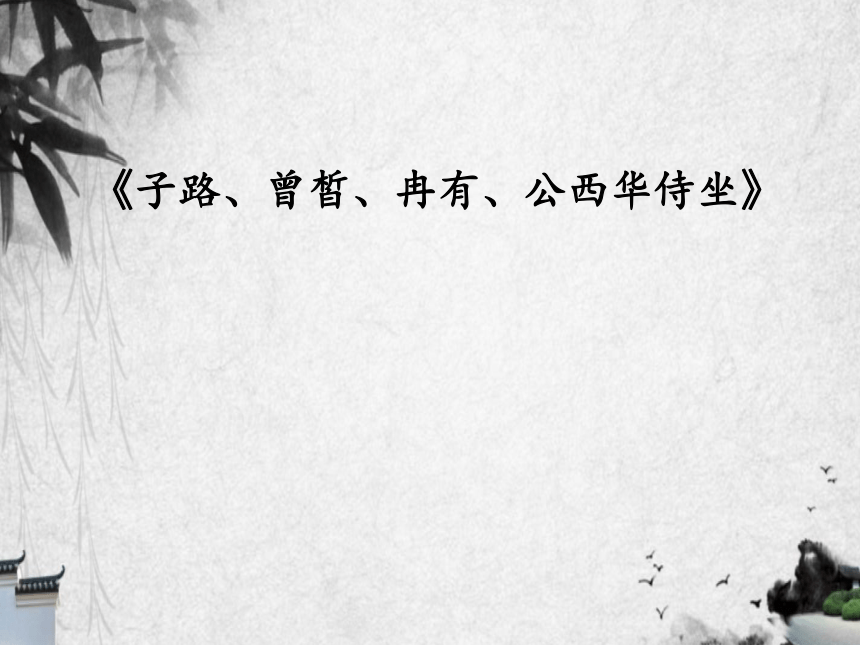 《子路、曾皙、冉有、公西华侍坐》